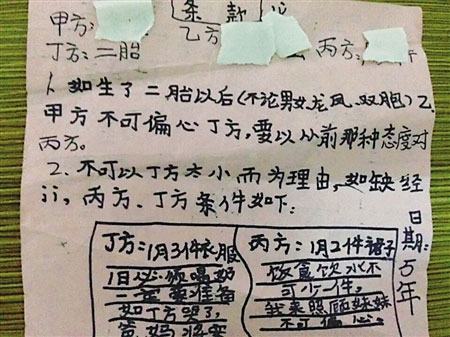 条款
甲方:
乙方
丙方:
丁方:二胎
1、如生了二胎以后(不论男女龙凤、双胞)乙、
甲方不可偏心丁方,要以从前那种态度对
丙方。
2、不可以丁方太小而为理由,如缺经
jì,丙方、丁方条件如下:
日期:5年
丁方:1月3件衣服
1日必须喝奶
一定要准备
如丁方哭了,
爸妈将要
丙方:1月2件裙子
饭食饮水不
可少一件。
我来照顾妹妹
不可偏心。